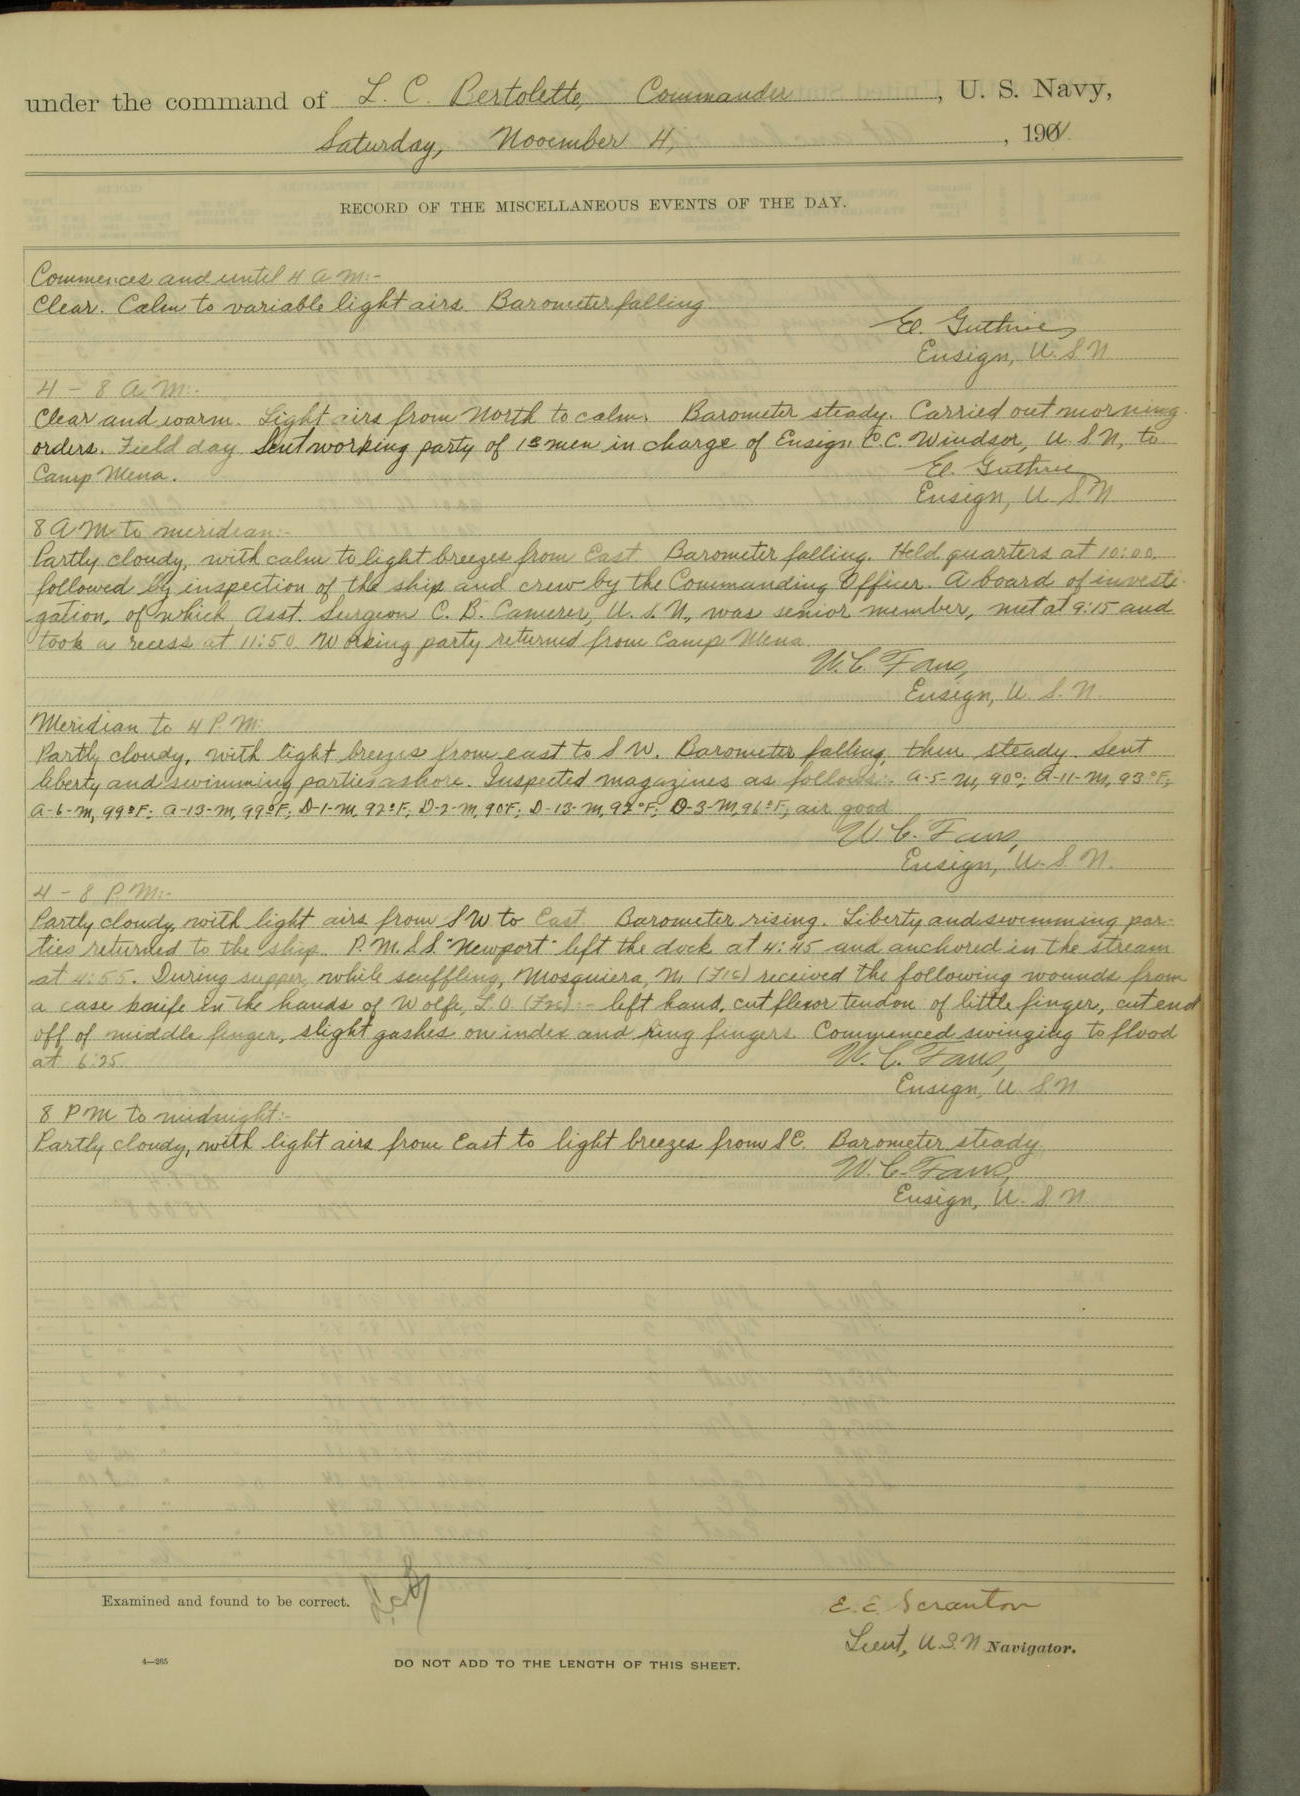 under the command of L. C. Bertolette, Commander, U. S. Navy,
Saturday, November 4, 1901
RECORD OF THE MISCELLANEOUS EVENTS OF THE DAY.
Commences and until 4 A M:-
Clear. Calm to variable light airs. Barometer falling
El. Guthrie
Ensign, U. S. N.
4 - 8 A M:-
Clear and warm. Light airs from North to calm. Barometer steady. Carried out morning
orders. Field day. Sent working party of men in charge of Ensign C.C. Windsor, U. S. N, to
Camp Mena.
El. Guthrie
Ensign, U S N
8 A M to meridian:-
Partly cloudy, with calm to light breezes from East. Barometer falling. Held quarters at 10:00,
followed by inspection of the ship and crew by the Commanding Officer. A board of investi-
gation, of which Asst. Surgeon C. B. Camerer, U. S. N., was senior member, met at 9:15 and
took a recess at 11:50 Working party returned from Camp Mena.
W. C. Faus,
Ensign, U. S. N.
Meridian to 4 P. M:
Partly cloudy, with light breezes from east to S W. Barometer falling, then steady. Sent
liberty and swimming parties ashore. Inspected magazines as follows:- A-5-M, 90°; A-11-M, 93°F;
A-6-M, 99°F; A-13-M, 99°F; D-1-M, 92°F; D-2-M, 90F; D-13-M, 92°F; D-3-M, 96°F, air good
W. C. Faus,
Ensign, U. S. N.
4 - 8 P. M:-
Partly cloudy, with light airs from S W to East. Barometer rising. Liberty and swimming par-
ties returned to the ship. P. M. S.S. "Newport" left the dock at 4:45 and anchored in the stream
at 4:55. During supper, while scuffling, Mosquiera, M (F1c) received the following wounds from
a case knife in the hands of Wolfe, L. O. :- left hand, cut flexor tendon of little finger, cut end
off of middle finger, slight gashes on index and ring fingers. Commenced swinging to flood
at 6:25.
W. C. Faus,
Ensign, U S. N
8 P M to midnight:-
Partly cloudy, with light airs from East to light breezes from S E. Barometer steady
W. C. Faus,
Ensign, U. S N
Examined and found to be correct.
E. E. Scranton
Lieut, U. S. N Navigator.
4—265
DO NOT ADD TO THE LENGTH OF THIS SHEET.